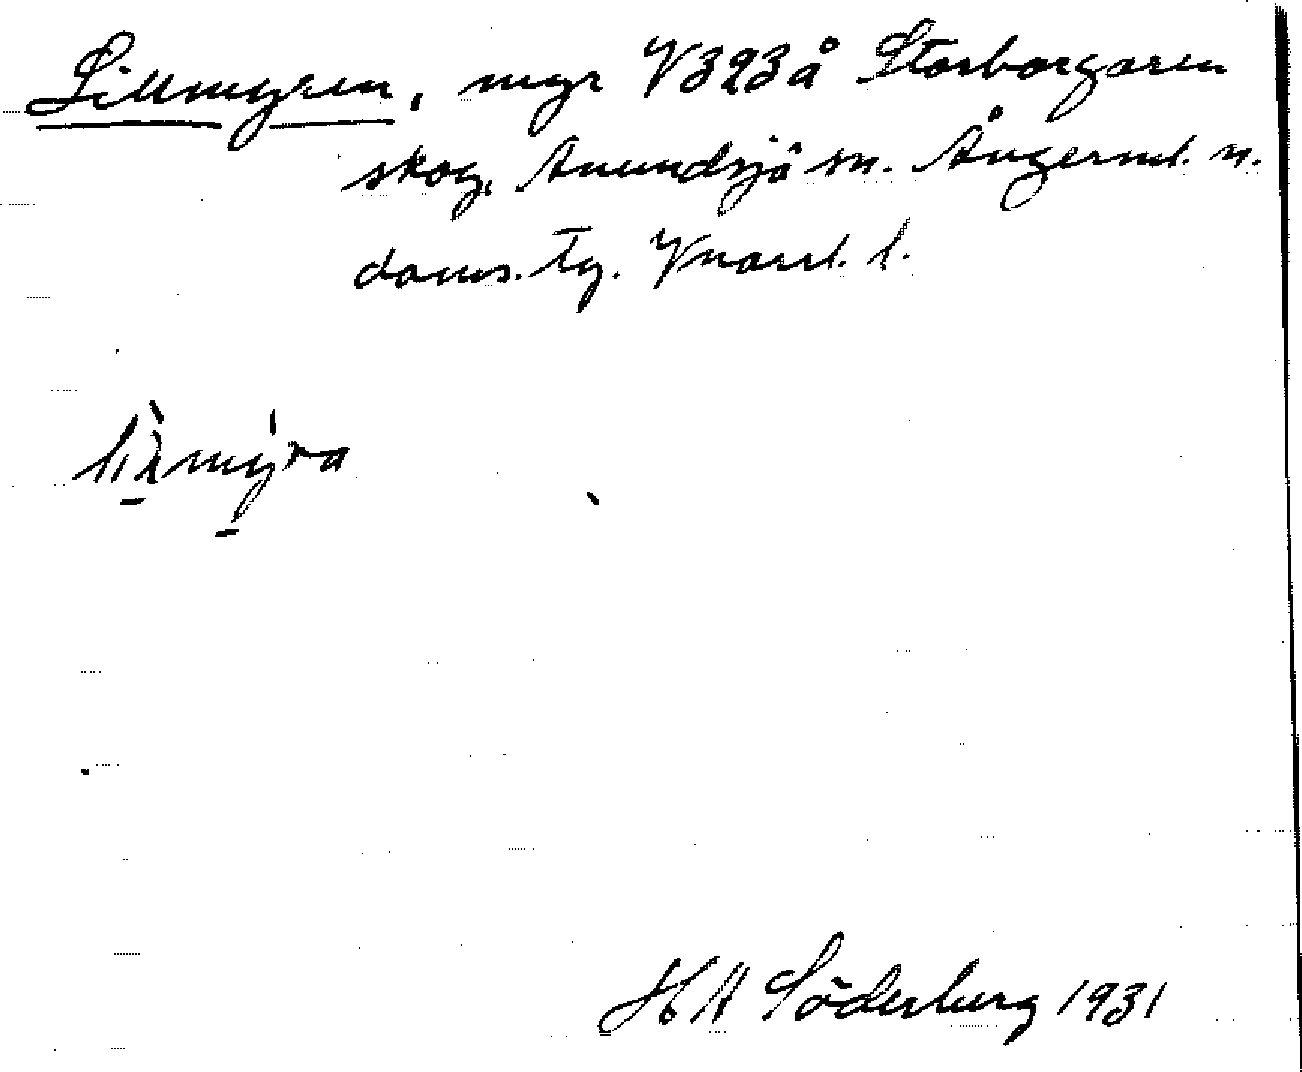 Lillmyren, myr V323å Storborgaren
skog, Anundsjö sn. Ångerml. n.
doms. tg. Vnorrl. l.
H A Söderberg 1931